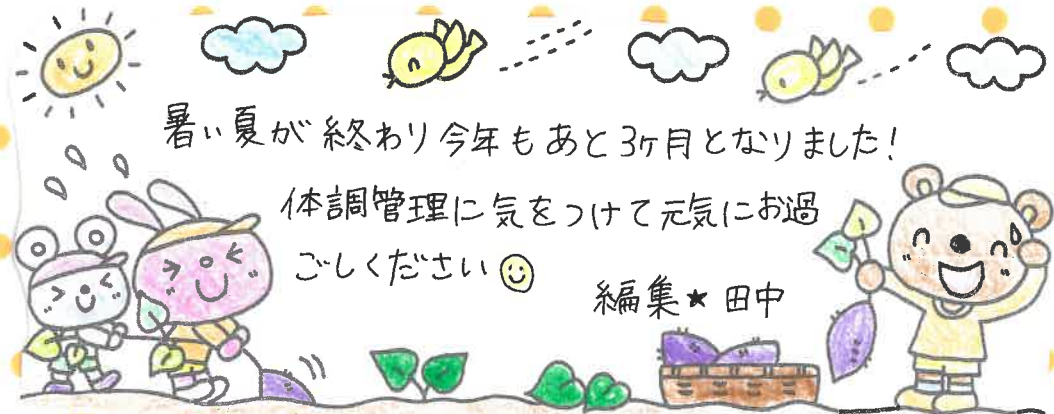 暑い夏が終わり今年もあと3ヶ月となりました!
体調管理に気をつけて元気にお過
ごしください
編集★田中